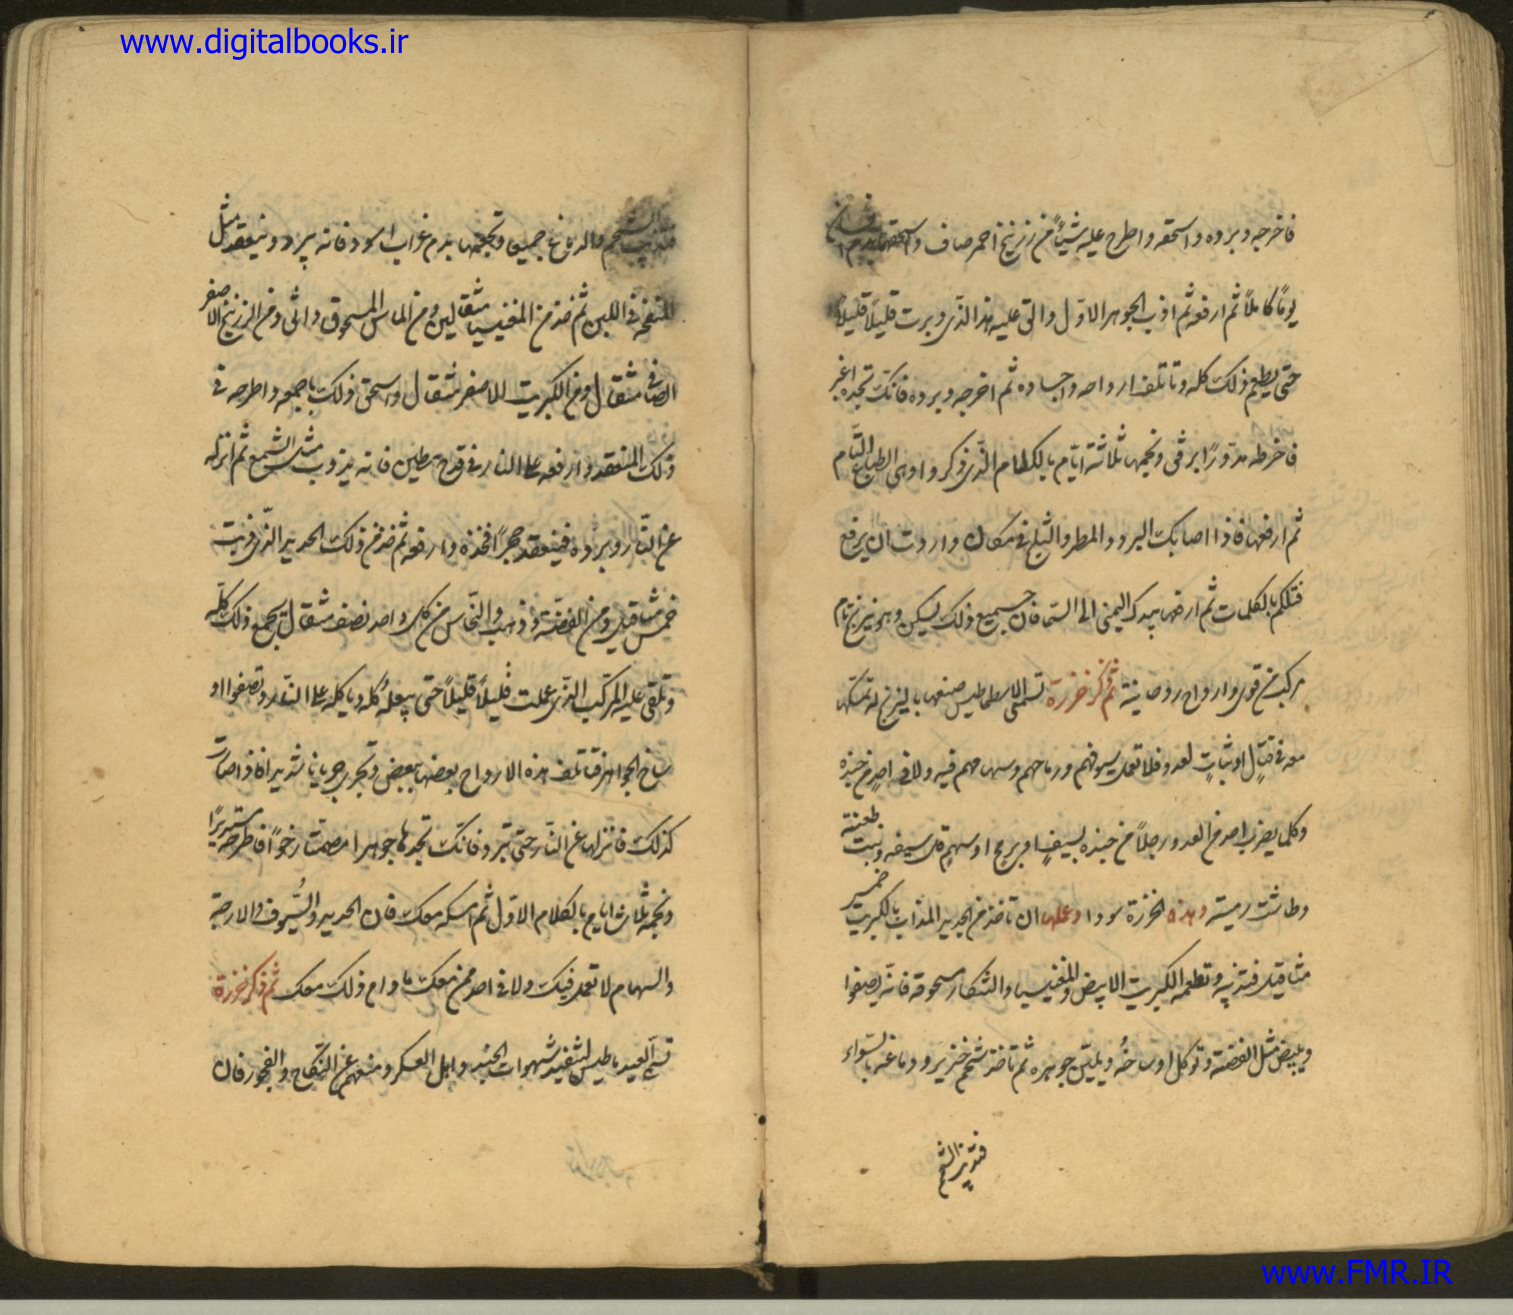 www.digitalbooks.ir
فاخرجه وبرده واسحقه واطرح عليه شيئاً من زرنيخ احمر صاف واسحقهما بدم
يوماً كاملاً ثم ارفعه ثم اذب الجوهر الاوّل والق عليه هذا الذّى وبرت قليلاً قليلاً
حتى يطعم ذلك كله وتاتلف ارواحه واجساده ثم اخرجه وبرده فانّك تجده اغبر
فاخرطه مدوّراً برفق ونجمها ثلاثة ايّام بالكلام الذّى ذكر وادهى الطباع التّام
ثم ارفعها فاذا اصابك البرد والمطر والثلج فى مكان واردت ان يرفع
فتكلم بالكلمات ثم ارفع يدك اليمنى الى السّما فان جميع ذلك يسكن وهو نيرنج تام
مركب من قوى وارواح روحانية ثم ذكر خرزة تسمّى الاسطماطيس صنعها باليزنج له تمسكها
معه فى قتالٍ او ثباتٍ لعدو فلا تعمل سيوفهم ورماحهم وسهامهم فيه ولا فى احدٍ من جنده
وكلما يضرب احد من العدو رجلاً من جنده بسيفٍ او برمح او سهمٍ كلّ سيفه ونبت طعنته
وطاشت رميته وهذه الخرزة سودا وعملها ان تاخذ من الحديد المذاب بالكبريت خمس
مثاقيل فتذيبه وتطعمه الكبريت الابيض والمغنيسيا والتنكار مسحوقة فانّه يصفوا
ويبيض مثل الفضة وتوكل اوساخهُ ويلين جوهره ثم تاخذ شحم خنزير ودماغه بالسّواء
فتذيب الشحم
فتذيب الشحم والدماغ جميعا وتجمعهما بدم غراب اسود فانه يبرد وينعقد مثل
المنفحة فى اللبن ثم خذ من المغنيسيا مثقالين ومن الماس المسحوق دانق ومن الزرنيخ الاصفر
الصّافى مثقال ومن الكبريت الاصفر مثقال واسحق ذلك باجمعه واطرحه فى
ذلك المنعقد وارفعه على النار فى قدح مطين فانه يذوب مثل الشمع ثم انزله
عن النّار وبرده فينعقد حجراً فخذه وارفعه ثم خذ من ذلك الحديد الذّى ذوبت
خمس مثاقيل ومن الفضة وذهب والنّحاس من كل واحد نصف مثقال تجمع ذلك كلّه
وتلقى عليه المركب الذّى عملت قليلاً قليلاً حتى يبلعهُ كله وياكله على النّار وتصفوا او
ساخ الجواهر وتاتلف هذه الارواح بعضها ببعض وتجرى جريانا شديدا فاذا صارت
كذلك فانزلها عن النّار حتى تبرد فانّك تجدها جوهرا مصمتا رخواً فاطرحه مستديراً
ونجمه ثلاث ايام بالكلام الاوّل ثم امسكه معك فان الحديد والسُّيوف والارجة
والسهام لا تعمل فيك ولا فى احد ممن معك ما دام ذلك معك ثم ذكر خرزة
تسمى العيدماطيس لتفيد شهوات الجند واهل العسكر ومنعهم عن النّكاح والفجور فان
www.FMR.IR